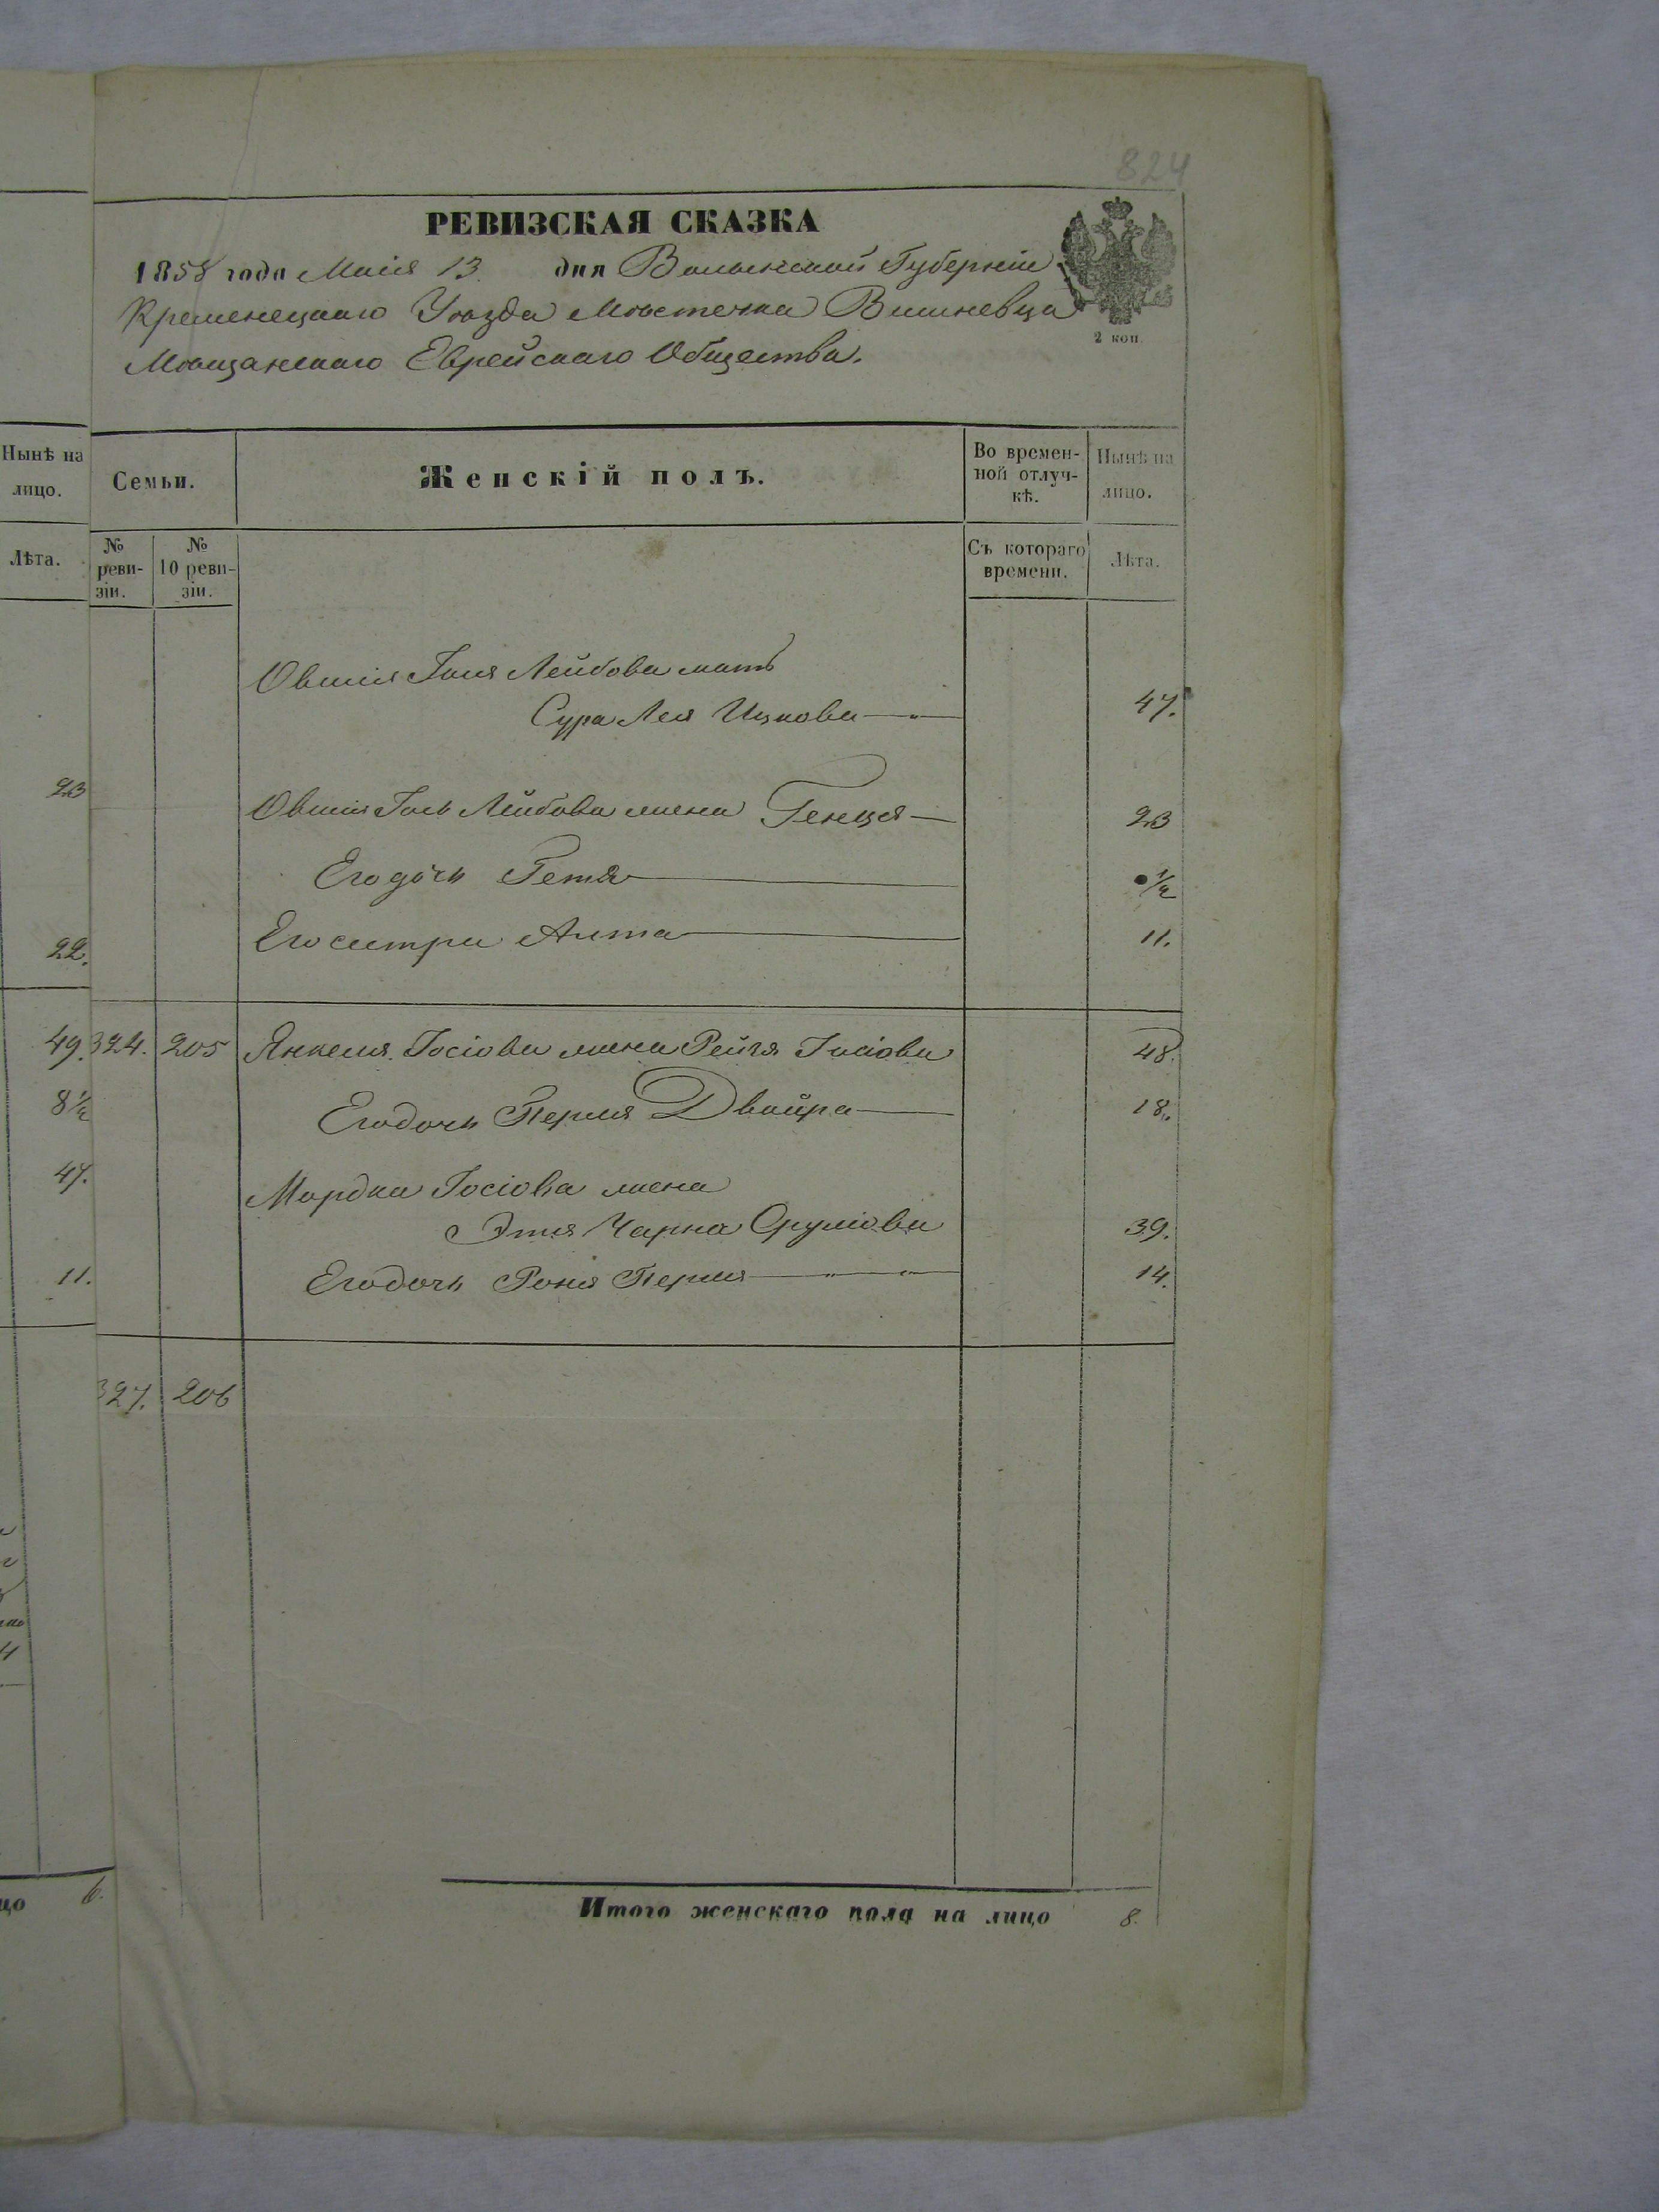 824
РЕВИЗСКАЯ СКАЗКА
1858 года Маія 13 дня Волынской Губерніи
Кременецкаго Уѣзда Мѣстечка Вишневца
Мѣщанскаго Еврейскаго Общества.
2 коп.
Нынѣ на лицо.
Лѣта.
Семьи.
Женскій полъ.
Во времен-
ной отлуч-
кѣ.
Нынѣ на
лицо.
№
реви-
зіи.
№
10 реви-
зіи.
Съ котораго
времени.
Лѣта.
Лейбова мать
Сура Лея Ицкова 47.
23
Лейбова жена Генця 23
Его дочь Гетя 1/2
22.
Его сестра Алта 11.
49. 324. 205 Янкеля Іосіова жена Рейзя Іосіова 48.
8 1/2
Его дочь Перля Двойра 18.
47.
Мордка Іосіова жена
Этя Чарна Срулiова 39.
11.
Его дочь Роня Перля 14.
327. 206
цо 6.
Итого женскаго пола на лицо 8.